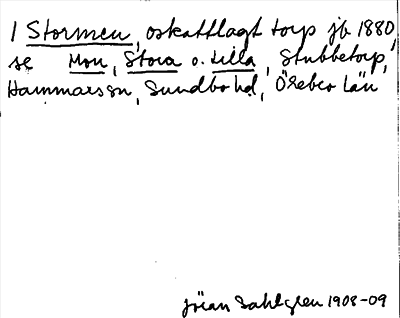 1 Stormen, oskattlagt torp jb 1880
se Mon, Stora o. Lilla, Stubbetorp,
Hammars sn, Sundbo hd, Örebro län
Jöran Sahlgren 1908-09